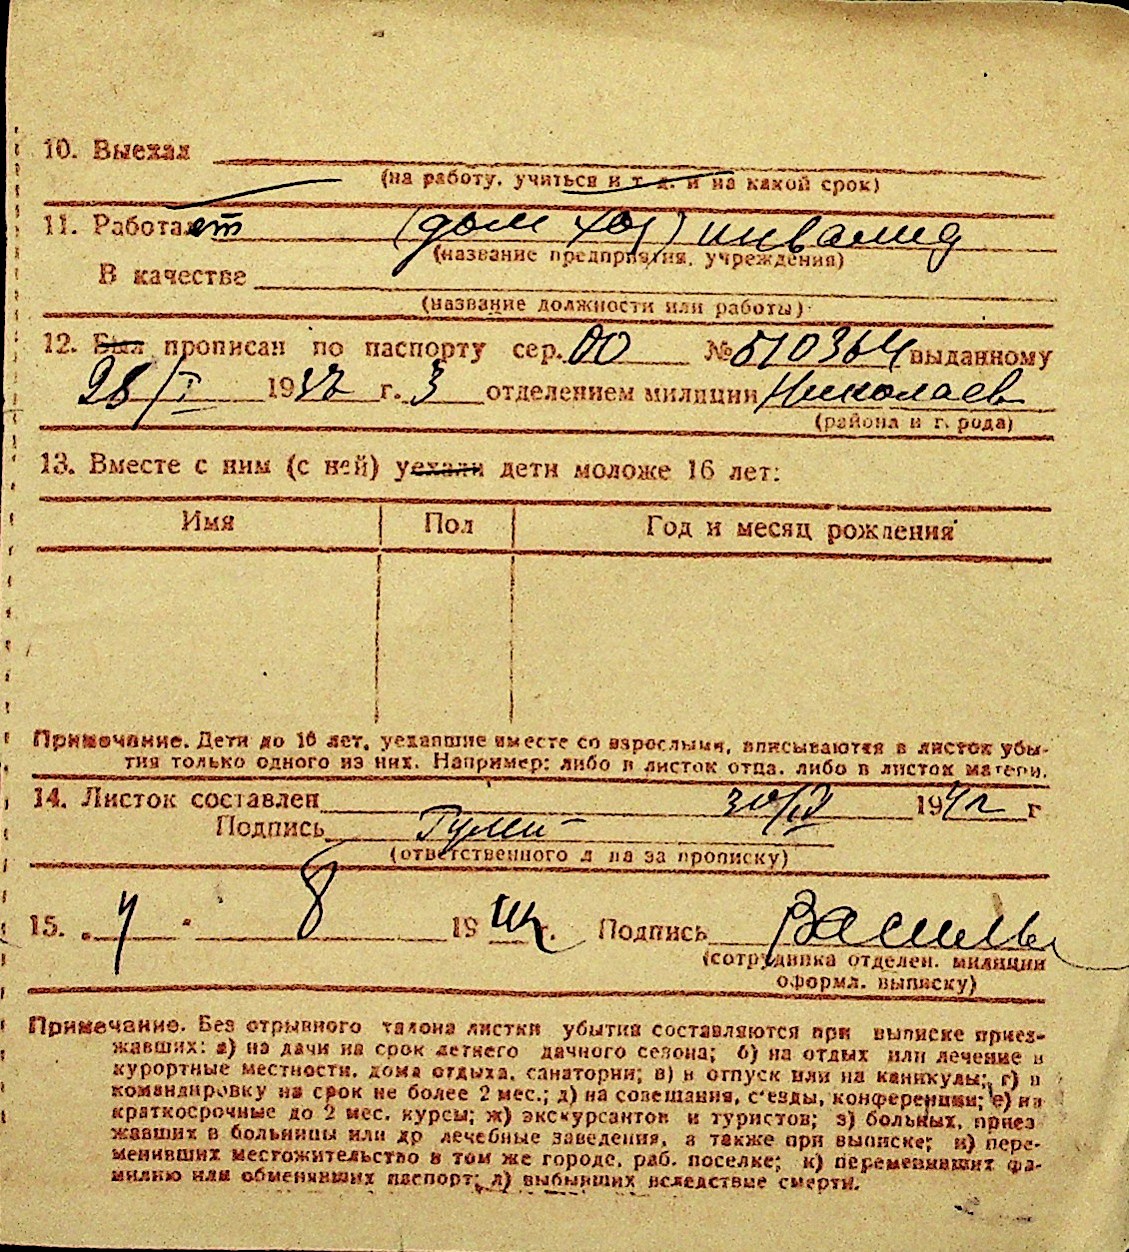 10. Выехал
(на работу, учиться и т. д. и на какой срок)
11. Работает (дом хоз) инвалид
(название предприятия, учреждения)
В качестве
(название должности или работы)
12. Был прописан по паспорту сер. ОО № 510364 выданному
28/I 1937 г. 3 отделением милиции Николаев
(района и г. рода)
13. Вместе с ним (с ней) уехали дети моложе 16 лет:
Имя Пол Год и месяц рождения
Примечание. Дети до 16 лет, уехавшие вместе со взрослыми, вписываются в листок убы-
тия только одного из них. Например: либо в листок отца, либо в листок матери.
14. Листок составлен 30/IV 1942 г
Подпись
(ответственного л на за прописку)
15. 4 8 1942 г. Подпись Василь
(сотрудника отделен. милиции
оформл. выписку)
Примечание. Без отрывного талона листки убытия составляются при выписке приез-
жавших: а) на дачи на срок летнего дачного сезона; б) на отдых или лечение в
курортные местности, дома отдыха, санатории; в) в отпуск или на каникулы; г) в
командировку на срок не более 2 мес.; д) на совещания, с'езды, конференции; е) на
краткосрочные до 2 мес. курсы; ж) экскурсантов и туристов; з) больных, приез
жавших в больницы или др лечебные заведения, а также при выписке; и) пере-
менивших местожительство в том же городе, раб. поселке; к) переменивших фа-
милию или обменявших паспорт; л) выбывших вследствие смерти.